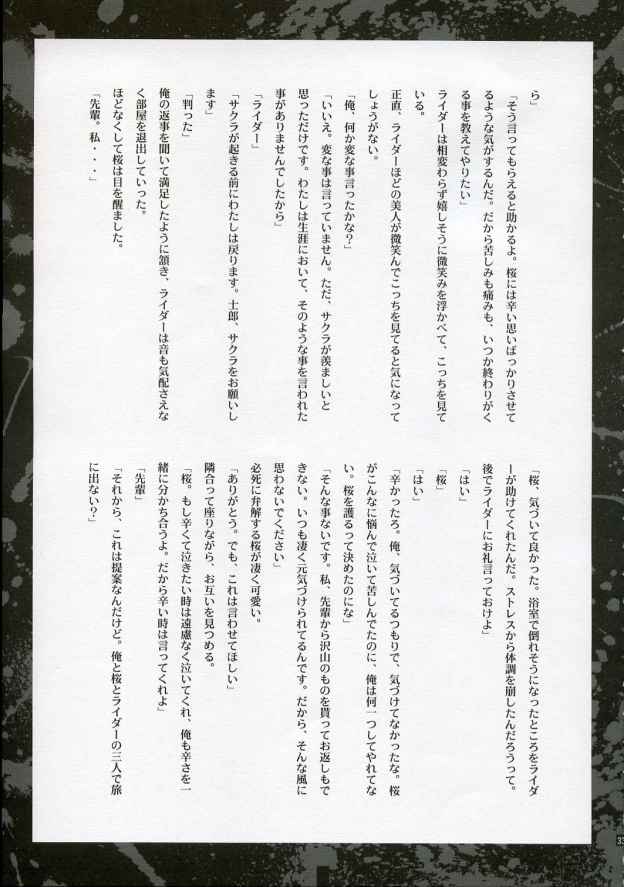 ら」
「そう言ってもらえると助かるよ。桜には辛い思いばっかりさせて
るような気がするんだ。だから苦しみも痛みも、いつか終わりがく
る事を教えてやりたい」
ライダーは相変わらず嬉しそうに微笑みを浮かべて、こっちを見て
いる。
正直、ライダーほどの美人が微笑んでこっちを見てると気になって
しょうがない。
「俺、何か変な事言ったかな？」
「いいえ。変な事は言っていません。ただ、サクラが羨ましいと
思っただけです。わたしは生涯において、そのような事を言われた
事がありませんでしたから」
「ライダー」
「サクラが起きる前にわたしは戻ります。士郎、サクラをお願いし
ます」
「判った」
俺の返事を聞いて満足したように頷き、ライダーは音も気配さえな
く部屋を退出していった。
ほどなくして桜は目を醒ました。
「先輩。私・・・」
「桜、気づいて良かった。浴室で倒れそうになったところをライダ
ーが助けてくれたんだ。ストレスから体調を崩したんだろうって。
後でライダーにお礼言っておけよ」
「はい」
「桜」
「はい」
「辛かったろ。俺、気づいてるつもりで、気づけてなかったな。桜
がこんなに悩んで泣いて苦しんでたのに、俺は何一つしてやれてな
い。桜を護るって決めたのにな」
「そんな事ないです。私、先輩から沢山のものを貰ってお返しもで
きない。いつも凄く元気づけられてるんです。だから、そんな風に
思わないでください」
必死に弁解する桜が凄く可愛い。
「ありがとう。でも、これは言わせてほしい」
隣合って座りながら、お互いを見つめる。
「桜。もし辛くて泣きたい時は遠慮なく泣いてくれ、俺も辛さを一
緒に分かち合うよ。だから辛い時は言ってくれよ」
「先輩」
「それから、これは提案なんだけど。俺と桜とライダーの三人で旅
に出ない？」